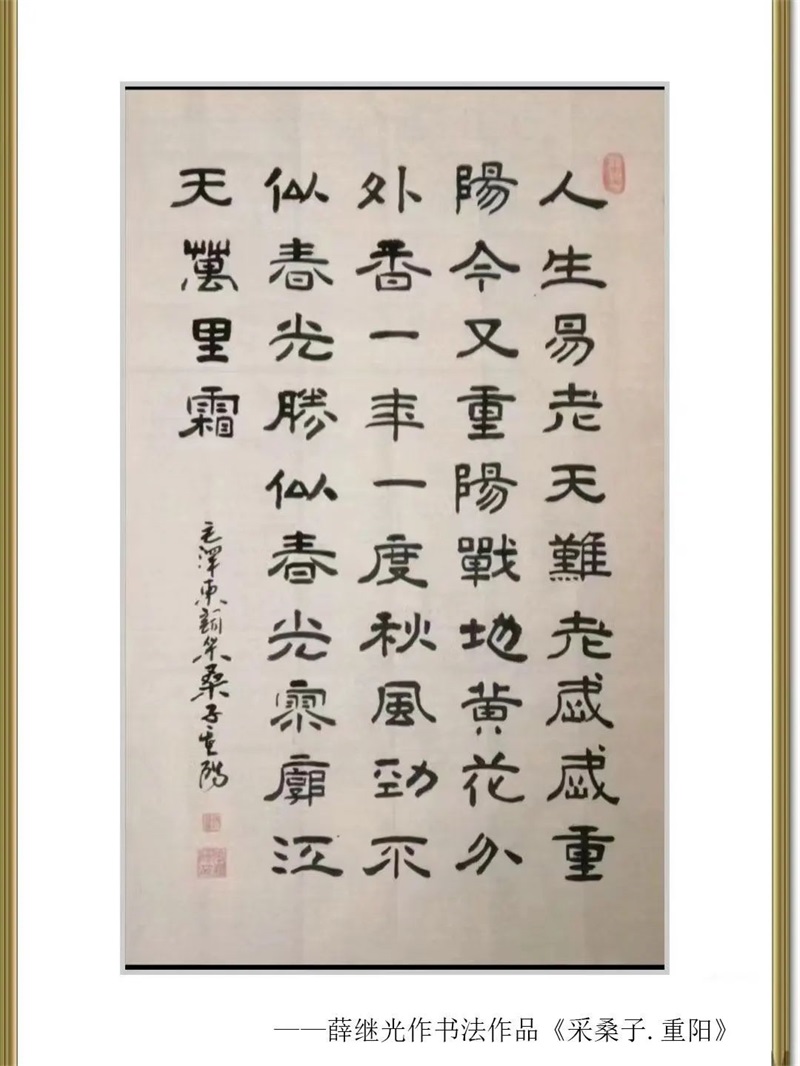 人生易老天難老歲歲重
陽今又重陽戰地黃花分
外香一年一度秋風勁不
似春光勝似春光寥廓江
天萬里霜
毛澤東詞采桑子重陽
——薛继光作书法作品《采桑子.重阳》